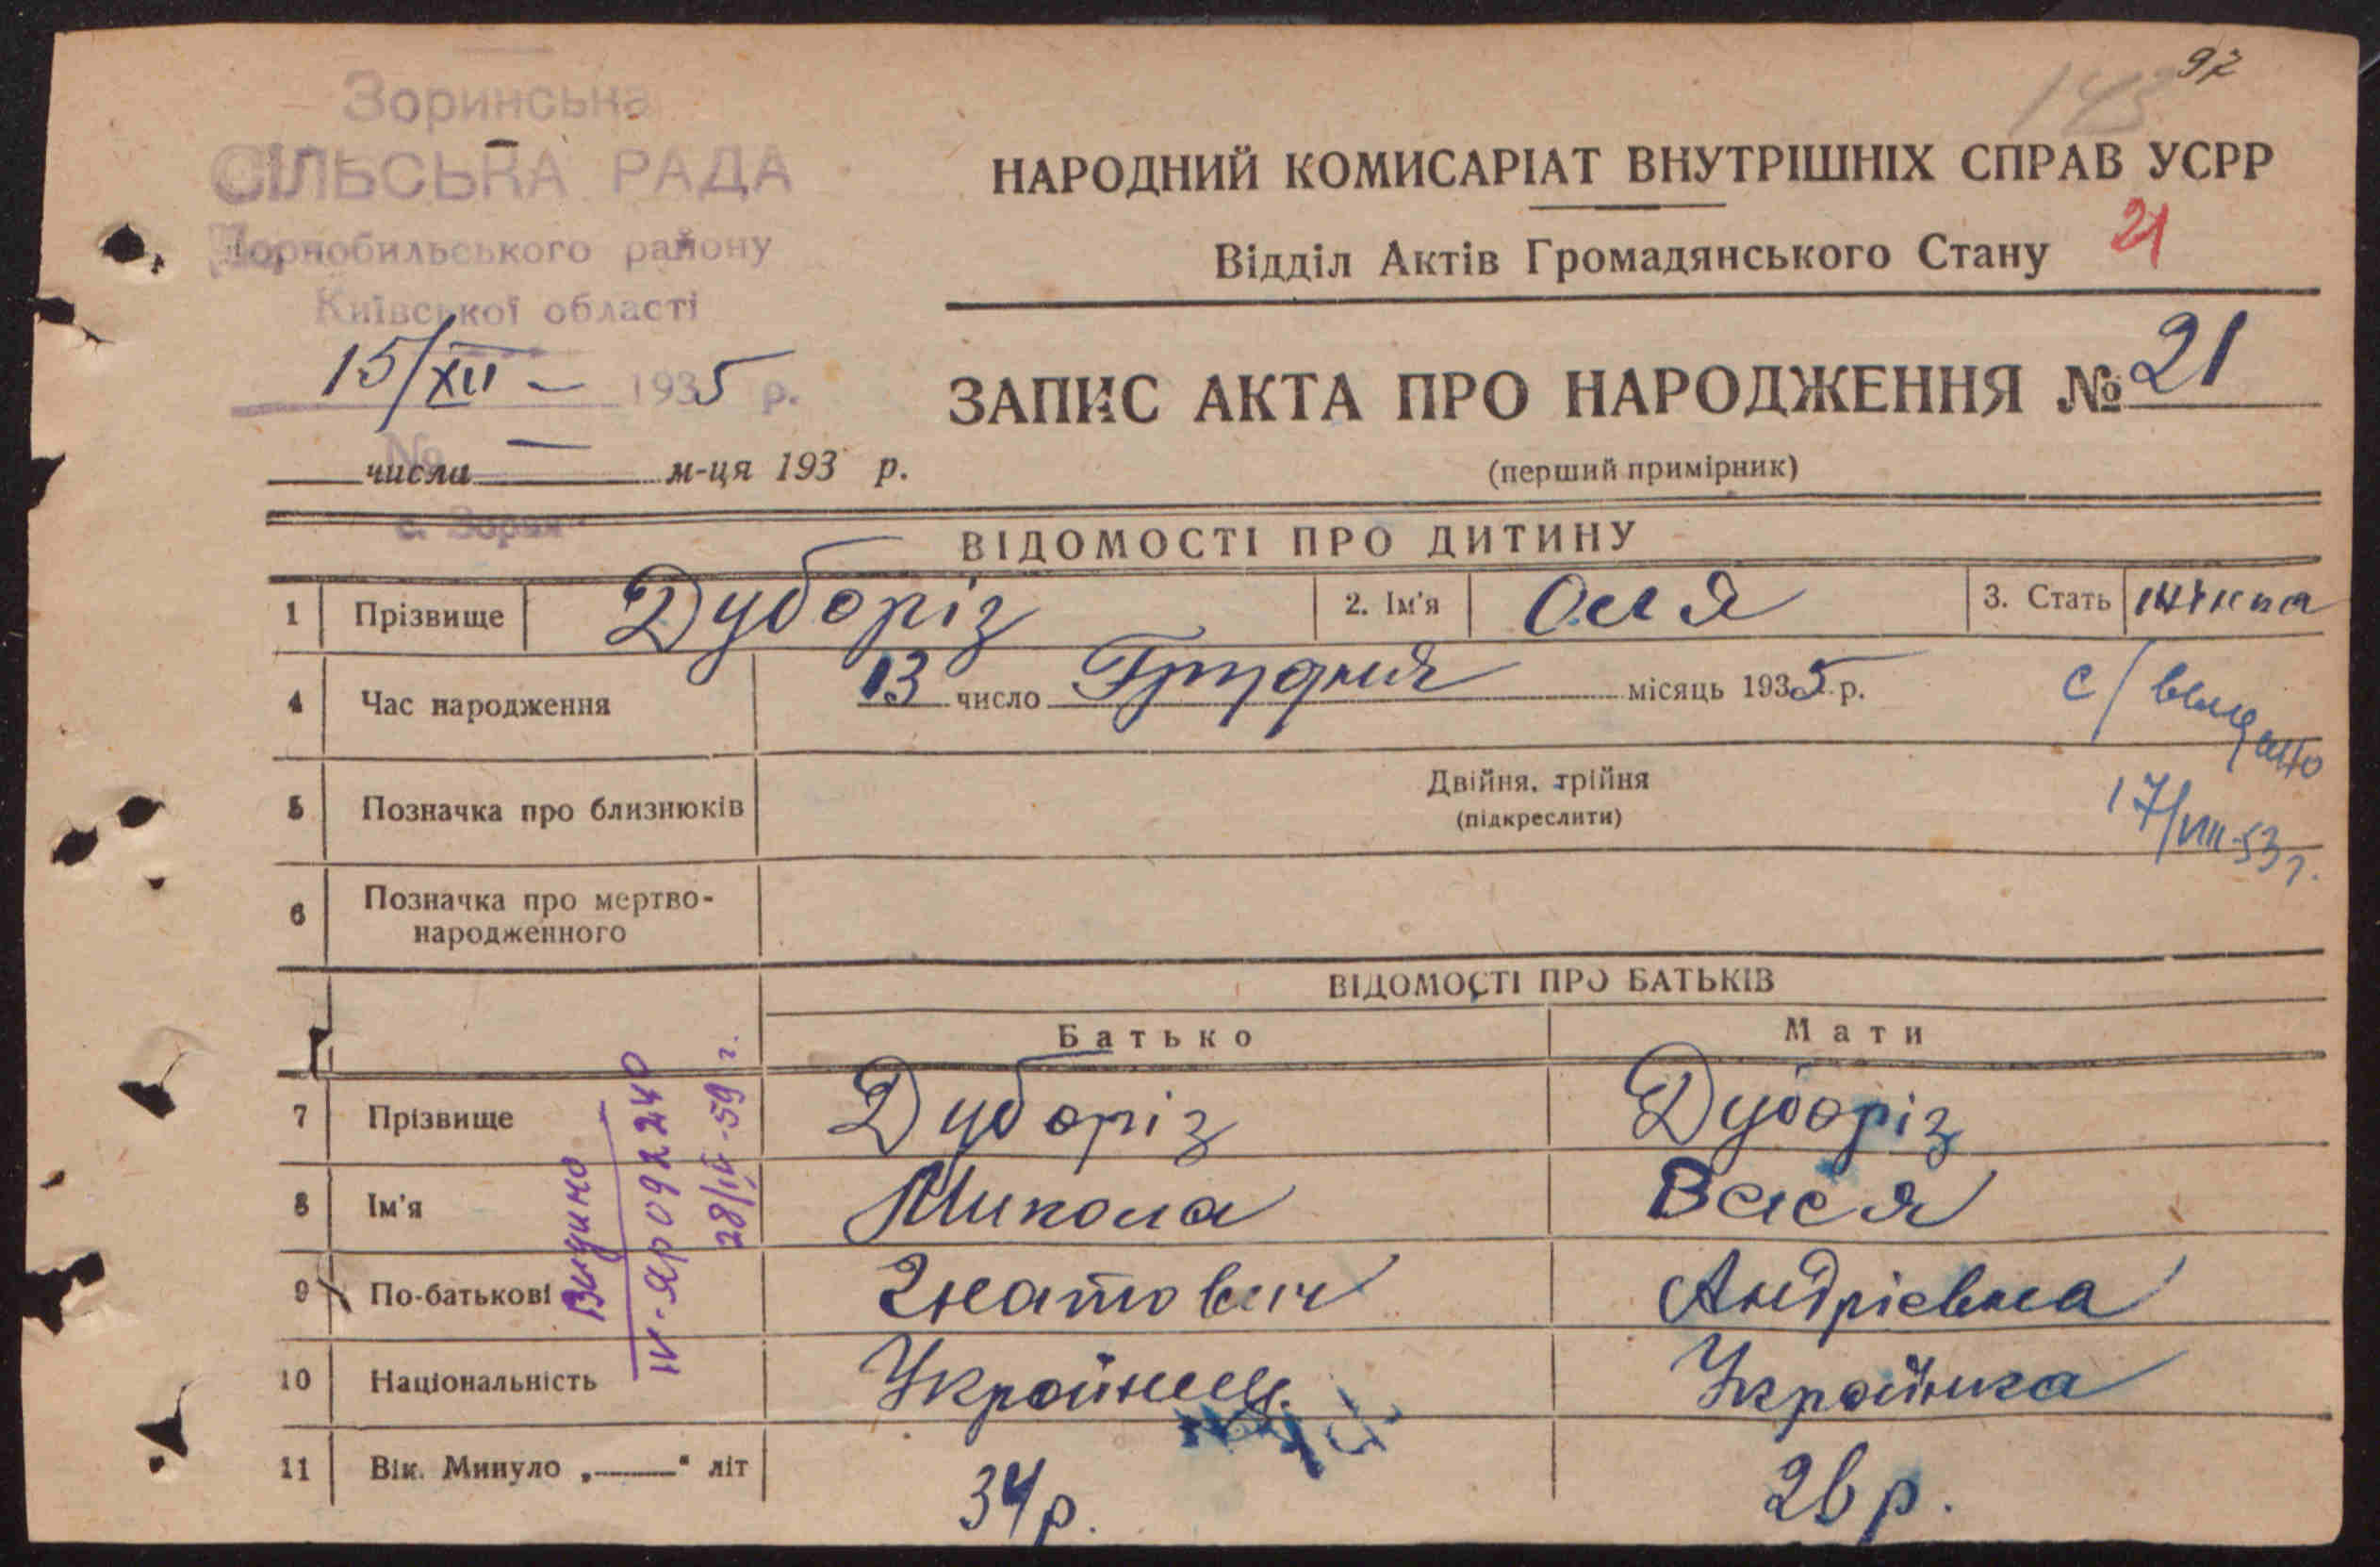 97
143
Зоринська
СІЛЬСЬКА РАДА
Чорнобильського району
Київської області
15/XII – 1935 р.
№ —
с. Зорин
НАРОДНИЙ КОМИСАРІАТ ВНУТРІШНІХ СПРАВ УСРР
Відділ Актів Громадянського Стану 21
ЗАПИС АКТА ПРО НАРОДЖЕННЯ № 21
числа м-ця 193 р.
(перший примірник)
ВІДОМОСТІ ПРО ДИТИНУ
1 Прізвище Дуборіз 2. Ім'я Оля 3. Стать жінка
4 Час народження 13 число Грудня місяць 1935 р.
с/ видано
17/VIII-53 г.
5 Позначка про близнюків Двійня, трійня
(підкреслити)
6 Позначка про мертво-
народженного
ВІДОМОСТІ ПРО БАТЬКІВ
Батько Мати
7 Прізвище Дуборіз Дуборіз
8 Ім'я Микола Вася
9 По-батькові Гнатович Андрієвна
10 Національність Українец. Українка
11 Вік. Минуло „——" літ 34 р. 26 р.
Видино
IV-ЯР 092240